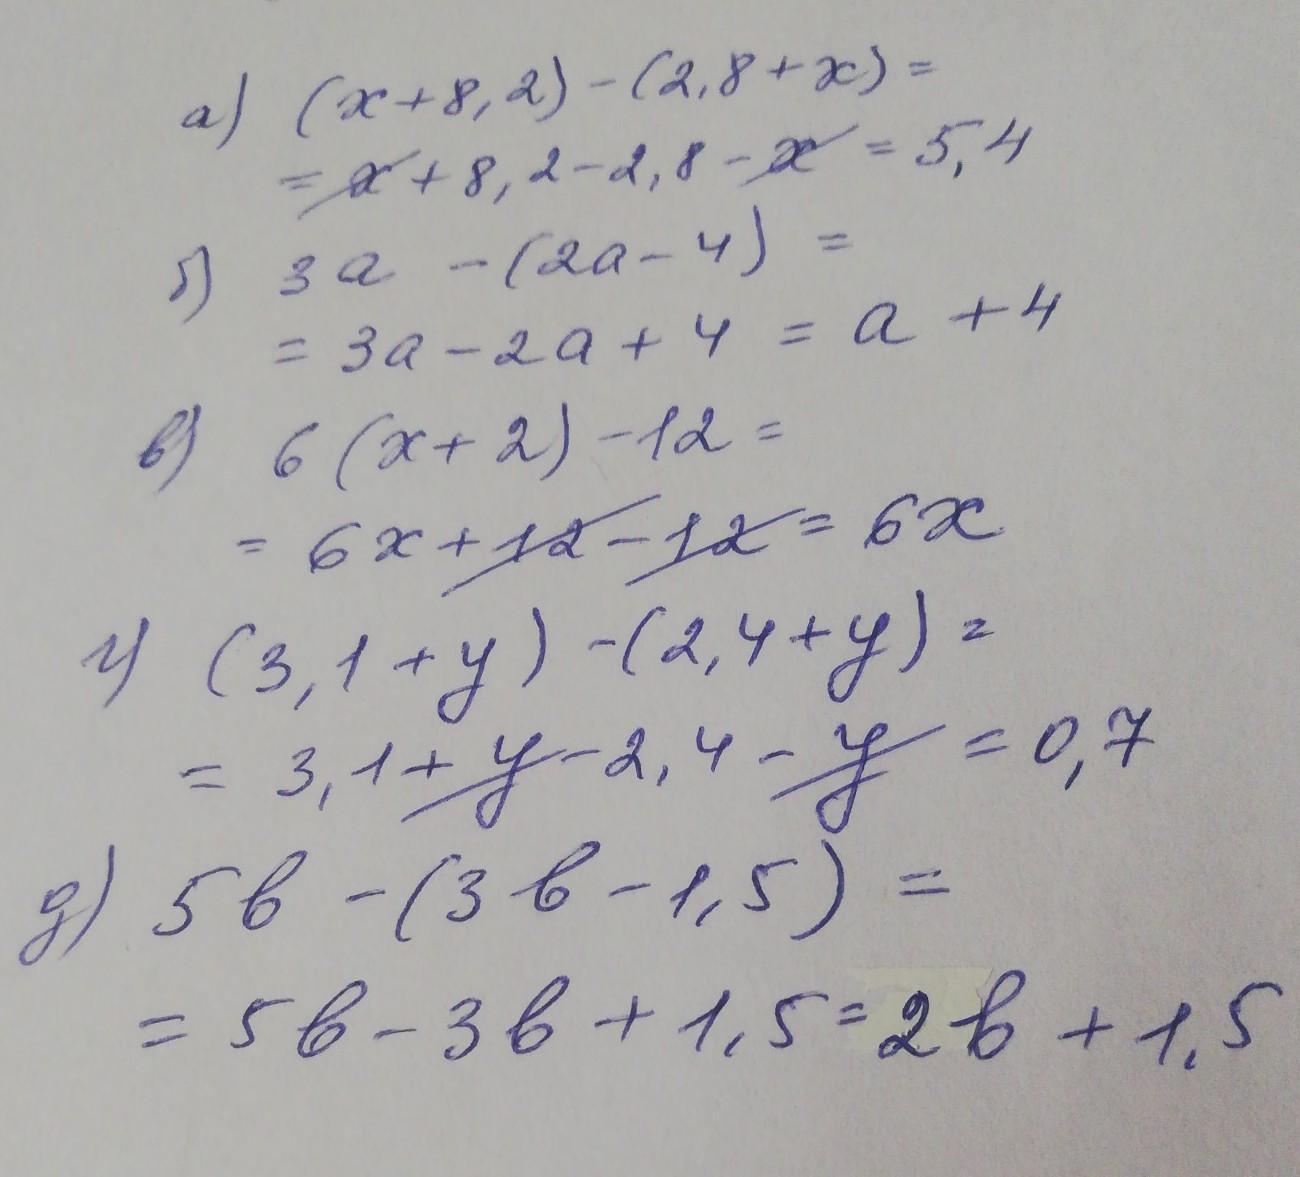 а) (x+8,2)-(2,8+x)=
=x+8,2-2,8-x=5,4
б) 3a-(2a-4)=
=3a-2a+4=a+4
в) 6(x+2)-12=
=6x+12-12=6x
г) (3,1+y)-(2,4+y)=
=3,1+y-2,4-y=0,7
д) 5b-(3b-1,5)=
=5b-3b+1,5=2b+1,5